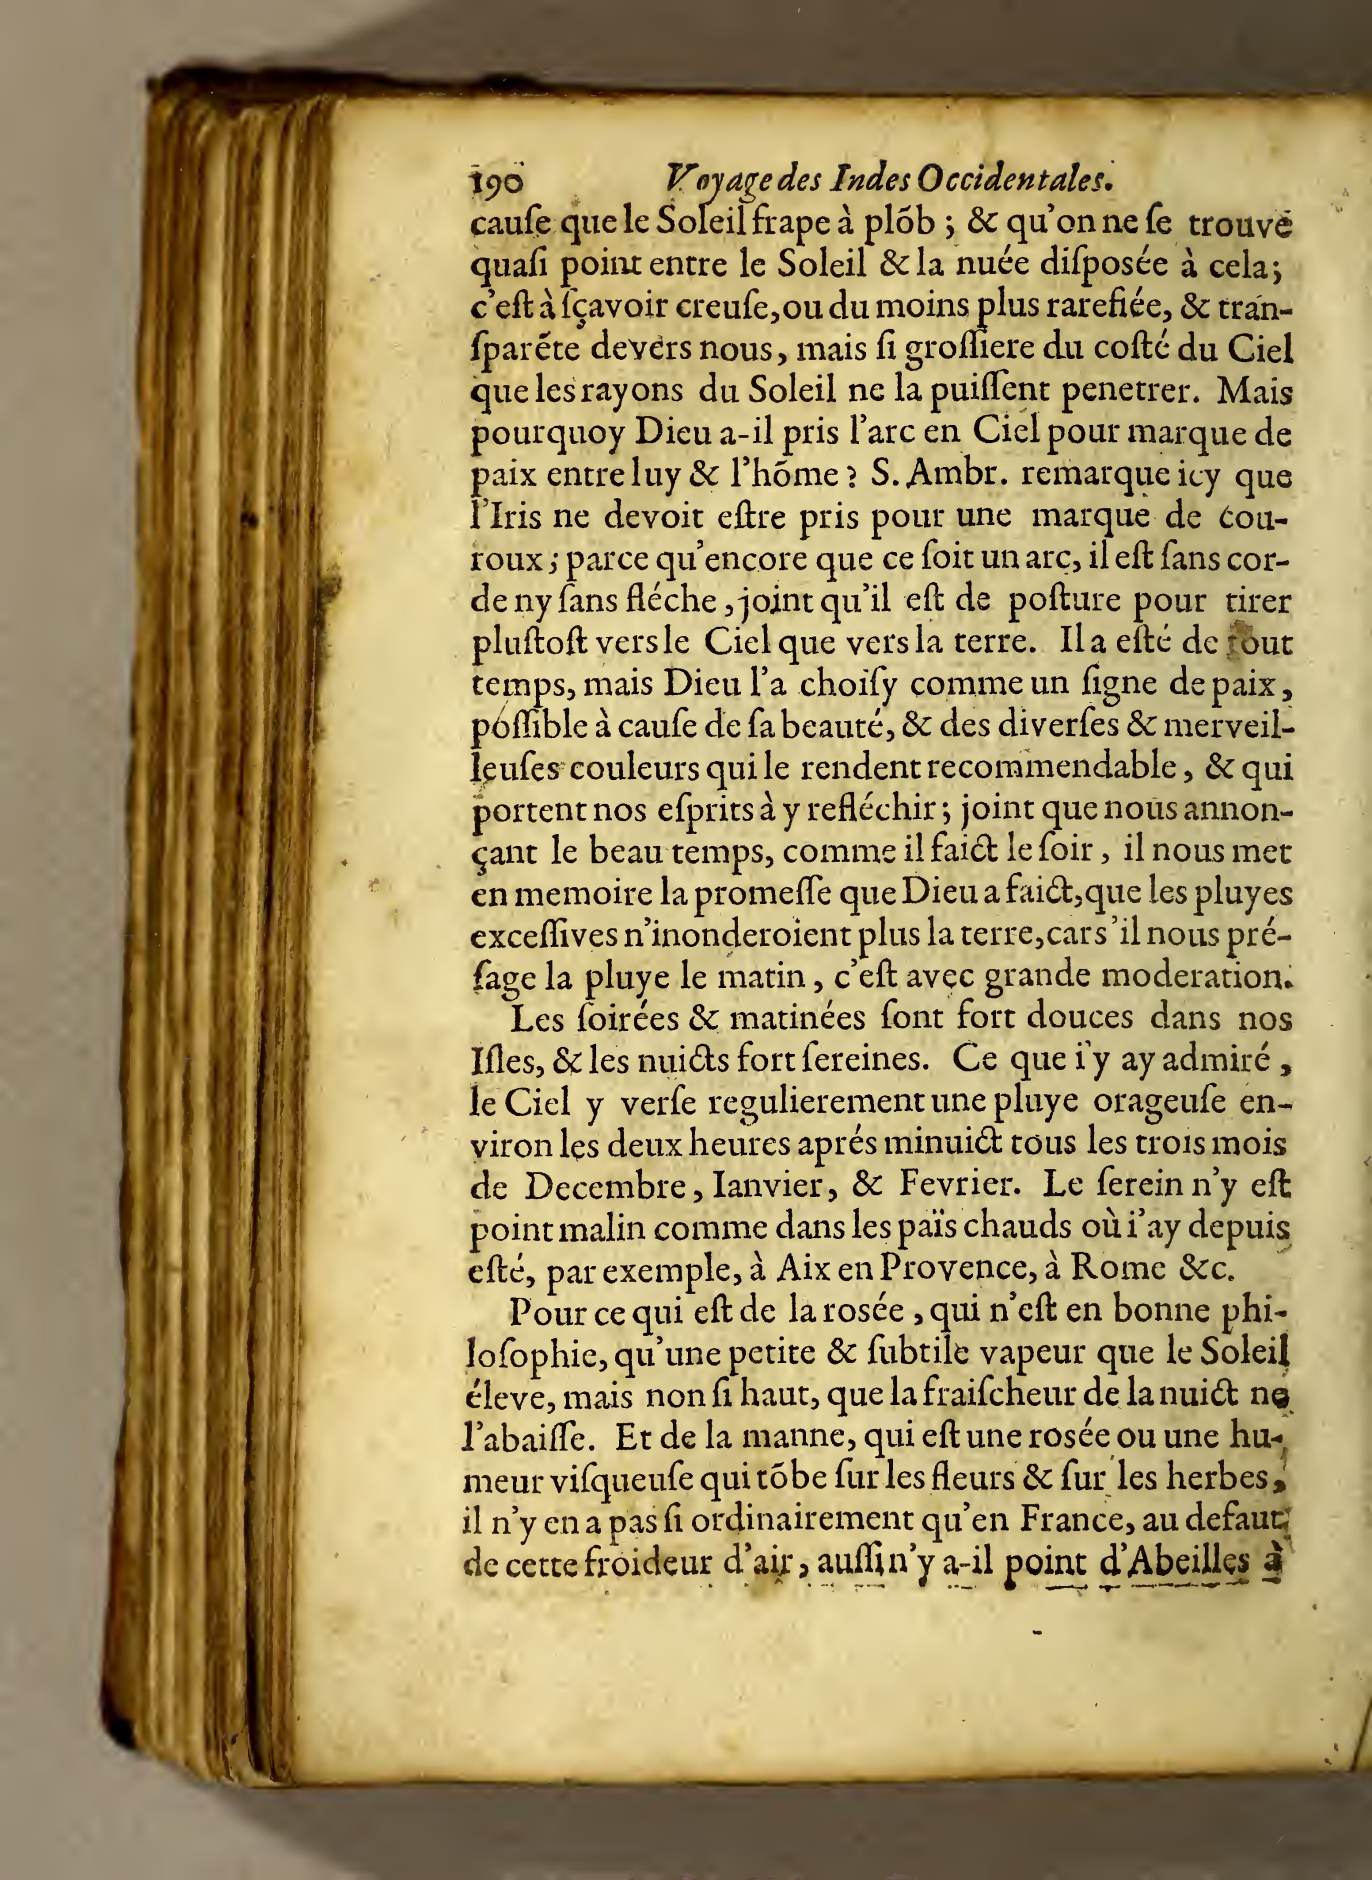 190 Voyage des Indes Occidentales.
cauſe que le Soleil frape à plõb ; & qu'on ne ſe trouve
quaſi point entre le Soleil & la nuée diſposée à cela;
c'eſt à ſçavoir creuſe, ou du moins plus rarefiée, & tran-
ſparẽte devers nous, mais ſi groſſiere du coſté du Ciel
que les rayons du Soleil ne la puiſſent penetrer. Mais
pourquoy Dieu a-il pris l'arc en Ciel pour marque de
paix entre luy & l'hõme ? S. Ambr. remarque icy que
l'Iris ne devoit eſtre pris pour une marque de cou-
roux ; parce qu'encore que ce ſoit un arc, il eſt ſans cor-
de ny ſans fléche, joint qu'il eſt de poſture pour tirer
pluſtoſt vers le Ciel que vers la terre. Il a eſté de tout
temps, mais Dieu l'a choiſy comme un ſigne de paix,
poſſible à cauſe de ſa beauté, & des diverſes & merveil-
leuſes couleurs qui le rendent recommendable, & qui
portent nos eſprits à y refléchir ; joint que nous annon-
çant le beau temps, comme il faict le ſoir, il nous met
en memoire la promeſſe que Dieu a faict, que les pluyes
exceſſives n'inonderoient plus la terre, car s'il nous pré-
ſage la pluye le matin, c'eſt avec grande moderation.
Les ſoirées & matinées ſont fort douces dans nos
Iſles, & les nuicts fort ſereines. Ce que i'y ay admiré,
le Ciel y verſe regulierement une pluye orageuſe en-
viron les deux heures aprés minuict tous les trois mois
de Decembre, Ianvier, & Fevrier. Le ſerein n'y eſt
point malin comme dans les païs chauds où i'ay depuis
eſté, par exemple, à Aix en Provence, à Rome &c.
Pour ce qui eſt de la rosée, qui n'eſt en bonne phi-
loſophie, qu'une petite & ſubtile vapeur que le Soleil
éleve, mais non ſi haut, que la fraiſcheur de la nuict ne
l'abaiſſe. Et de la manne, qui eſt une rosée ou une hu-
meur viſqueuſe qui tõbe ſur les fleurs & ſur les herbes,
il n'y en a pas ſi ordinairement qu'en France, au defaut
de cette froideur d'air, auſſi n'y a-il point d'Abeilles à